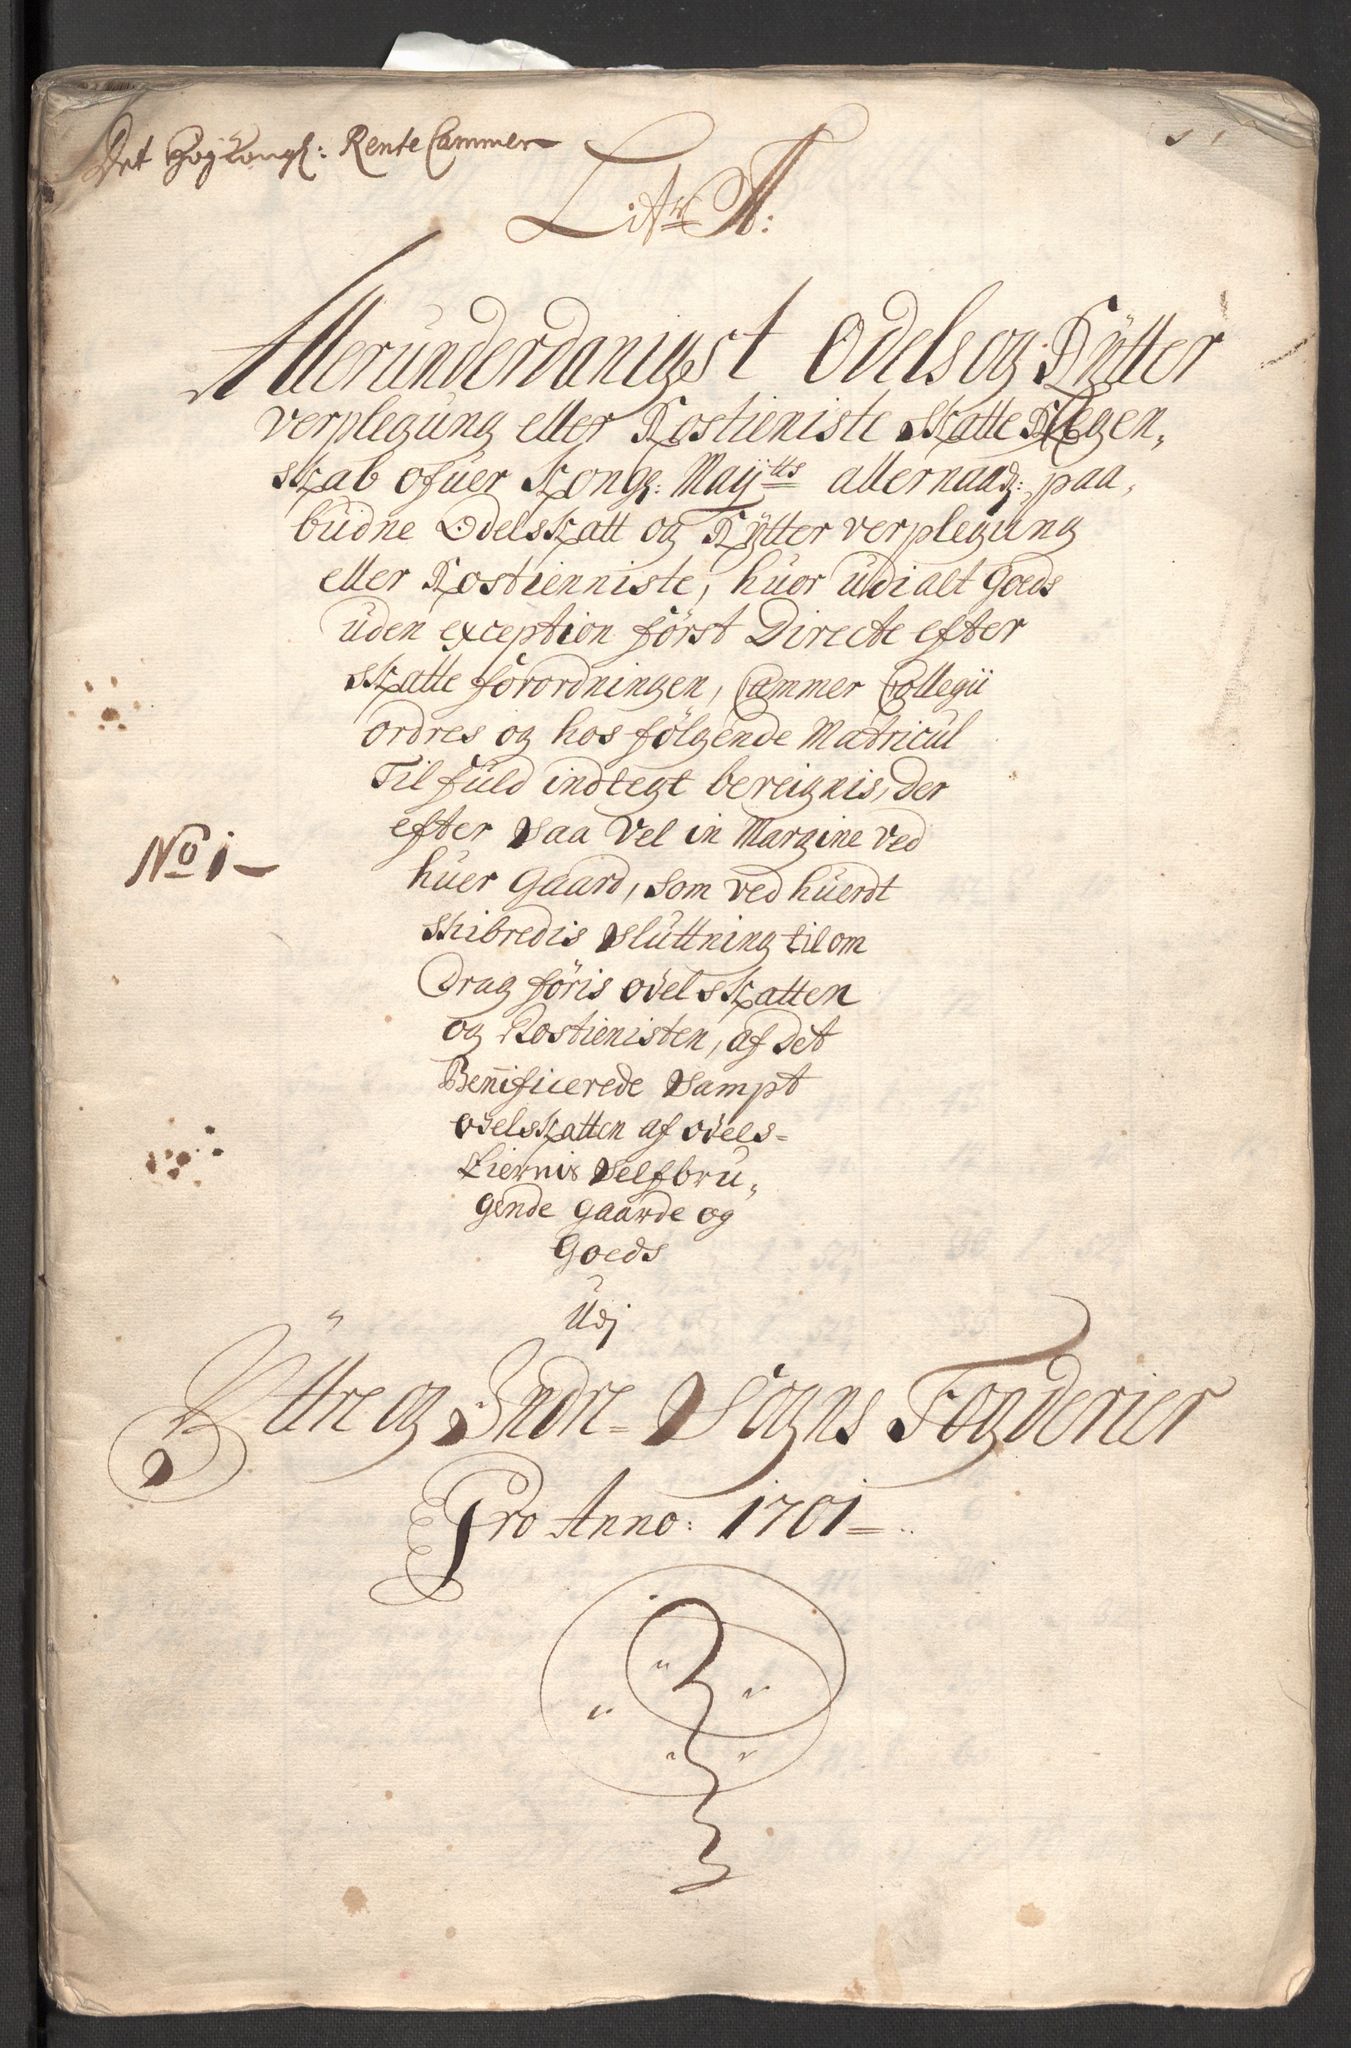 Det Høy Kongl: Rente Cammer
Litr: A:
Allerunderdanigst Odels og Rÿtter
verplegung eller Rostieniste Skatte Regen„
skab ofuer Kongl: Maÿtts allernaad: paa„
budne Odelskatt og Rÿtter verplegung
eller Rostienniste, huor udi alt goeds
uden exception först Directe efter
skatte forordningen, Cammer Collegii
ordres og hos fölgende Matricul
Til fuld indtegt bereignis, der
efter saa vel in Margine ved
No 1
huer gaard, som ved huerdt
skibredis sluttning til om
drag föris odelskatten
og Rostienisten, af det
Benificerede sampt
odelskatten af odels=
Eiernis selfbru„
gende gaarde og
Goeds
Udj
Ÿttre og Indre= Sogns Fogderier
Pro Anno: 1701=